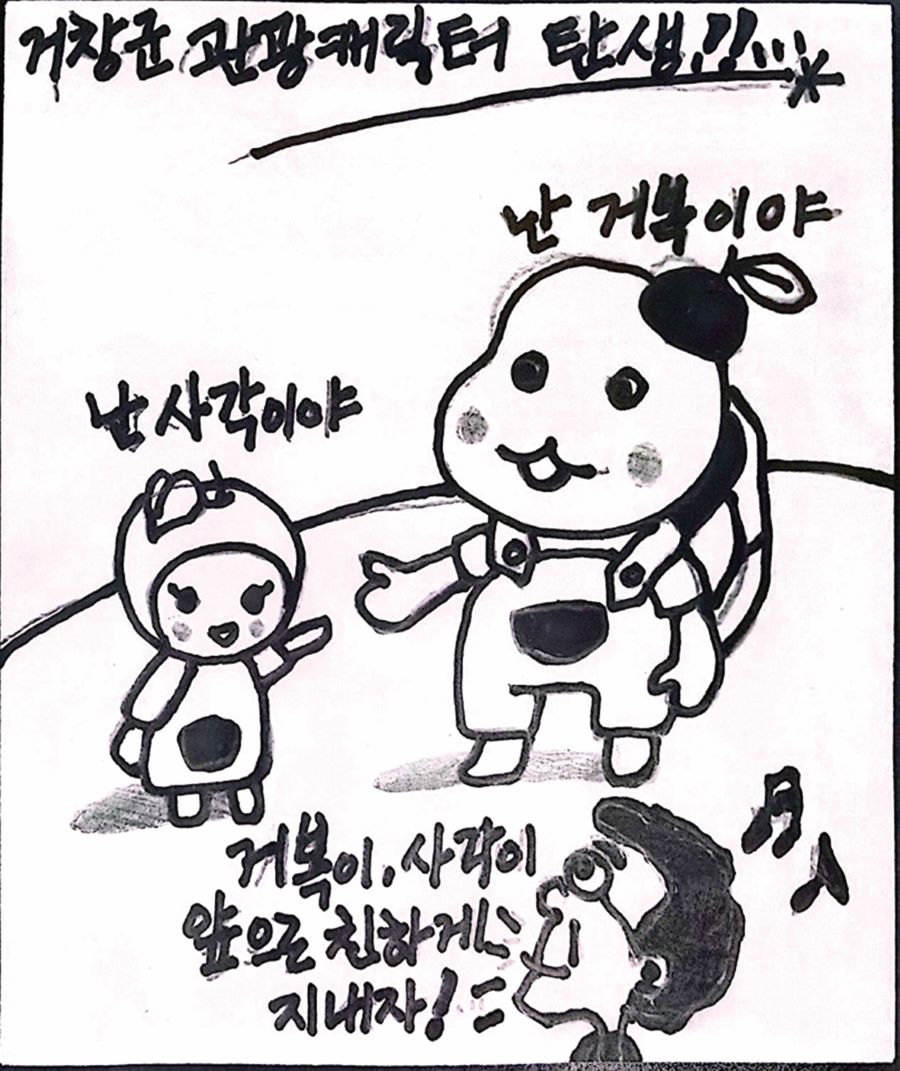 거창군 관광캐릭터 탄생!!...
난 거북이야
난 사각이야
거북이, 사각이
앞으로 친하게
지내자!